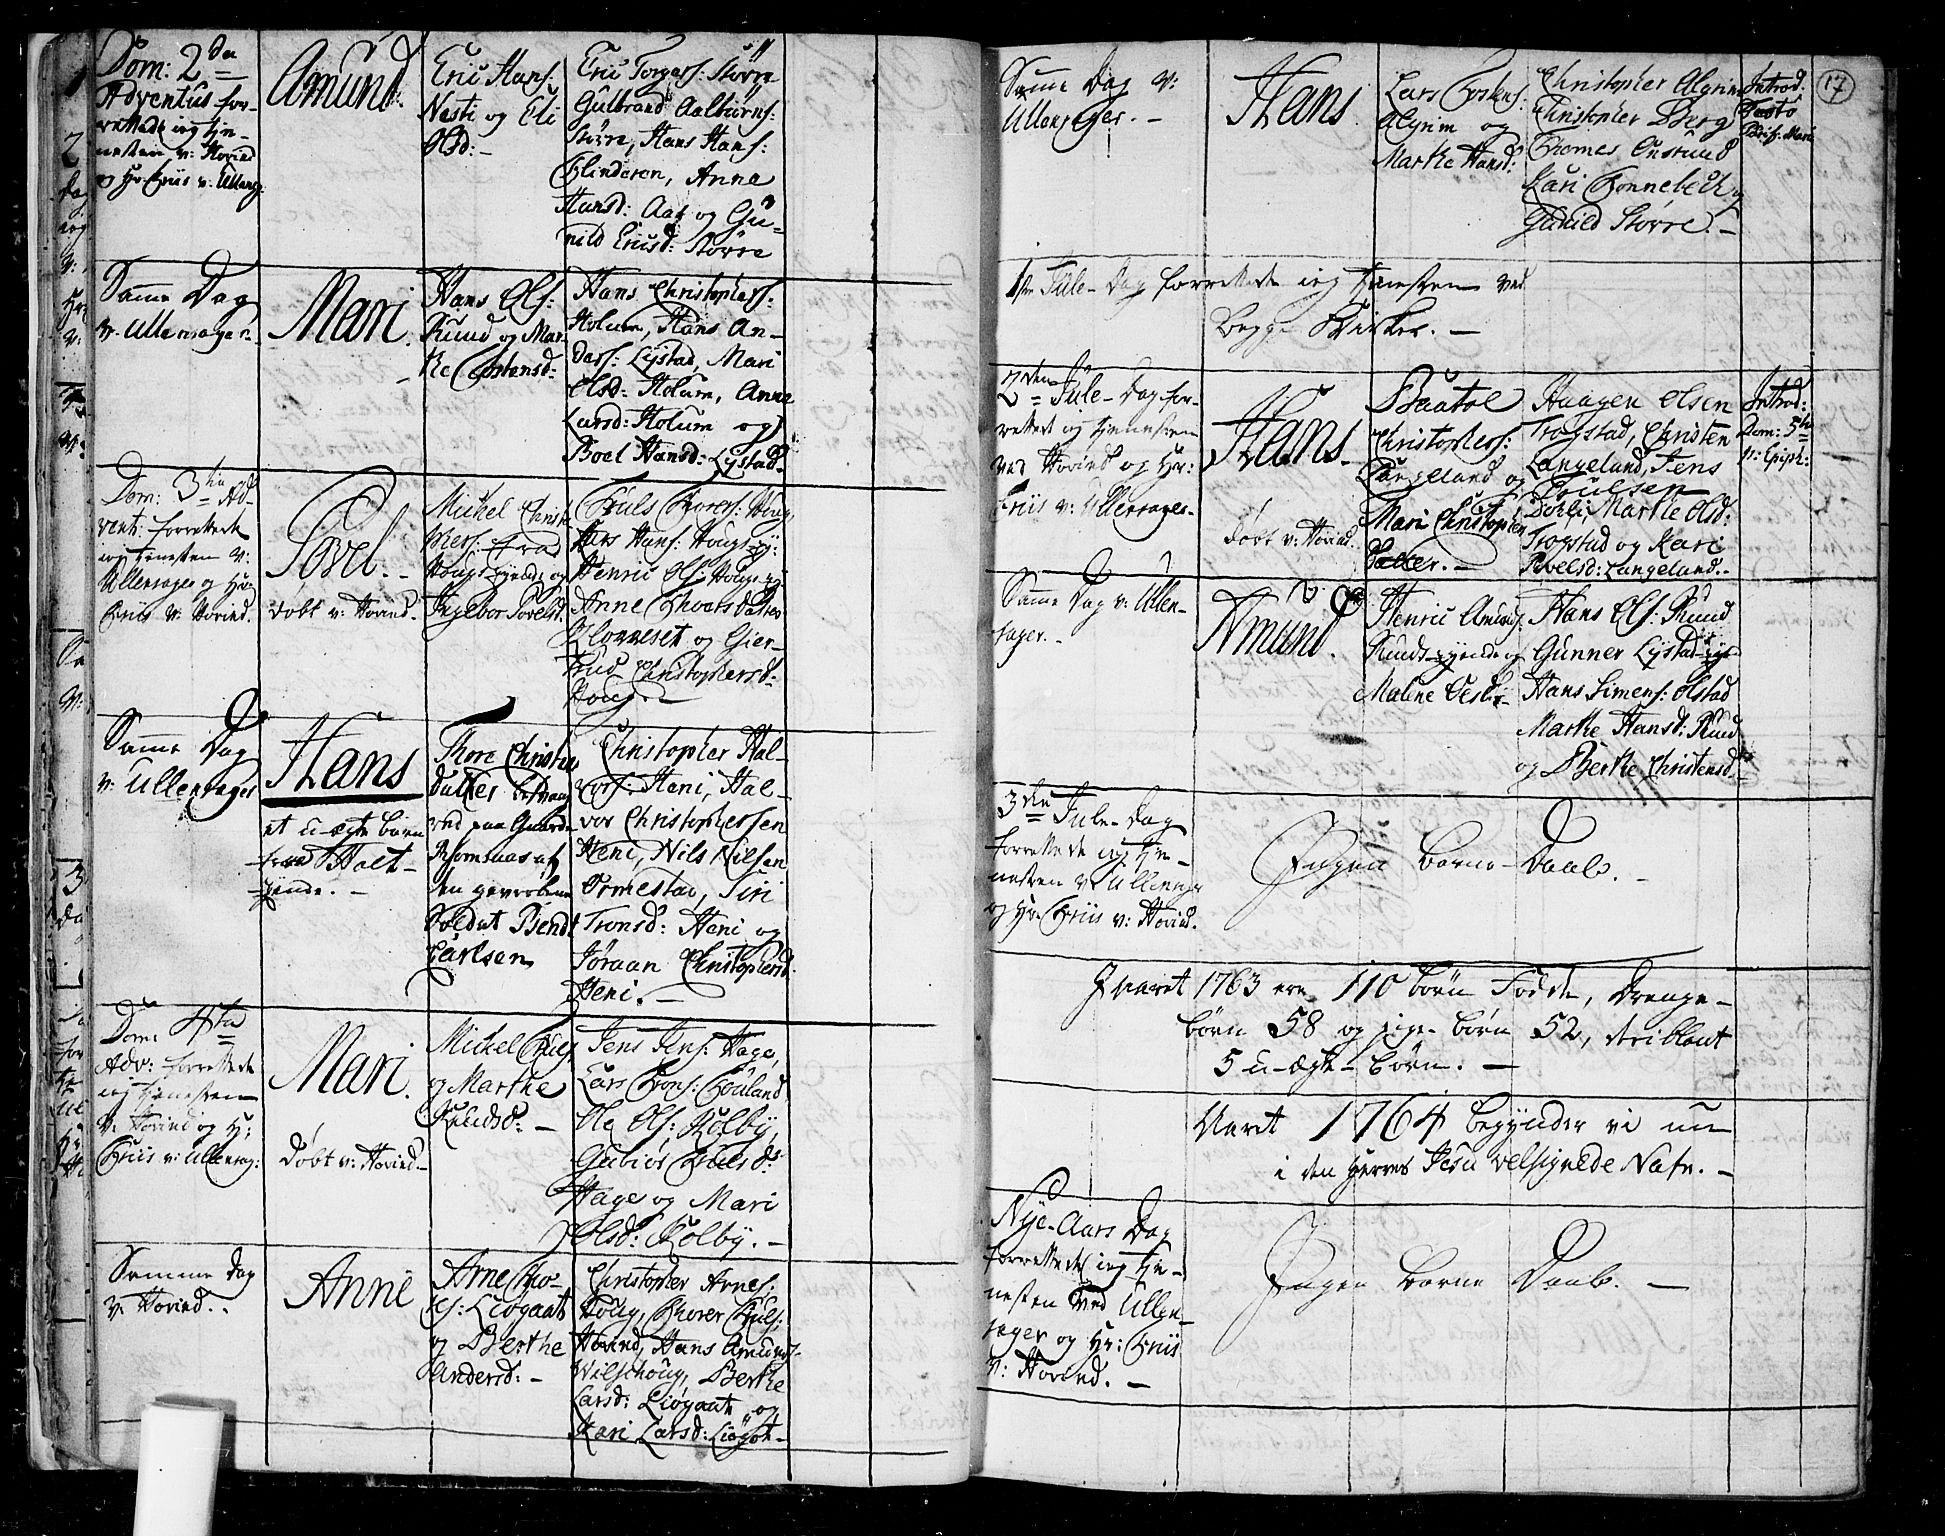 Dom: 2da
Adventus for-
rettede ieg tie-
nesten v: Hovind
og Hr. Friis v: Ullens:
Amund.
Eric Hans:
Nesti og Eli
Olsd: -
Eric Torgers: Større
Gulbrand Aalbiørns:
Større, Hans Hans:
Flinderen, Anne
Hansd: Aas og Gu-
nild Ericsd: Større
Samme Dag
v. Ullensager.
Mari.
Hans Ols:
Ruud og Mar-
the Christensd:
Hans Christophers:
Holum, Hans An-
ders: Lystad, Mari
Olsd: Holum, Anne
Larsd: Holum og
Boel Hansd: Lystad.
Dom: 3tia Ad-
vent: forrettede
ieg tienesten v:
Ullensager og Hr.
Friis v: Hovind.
Povel. -
døbt v: Hovind.
Michel
Houg
Ingebor Povelsd:
Truls Thorers: Houg,
Lars Hans: Hougs-ej:
Henric Ols: Hougs-ej:
Anne
Kloppeset og Gier-
trud Christophersd:
Houg. -
Samme Dag
v: Ullensager
Hans
et u-ægte barn
fra Holt-
ejende. -
Thore Christens
datter
ved paa Guards
Rommas af
den
Soldat Bendt
Carlsen
Christopher Hal-
vors: Heni, Hal-
vor Christophersen
Heni, Nils Nilsen
Ormestad, Siri
Tronsd: Heni og
Jøraan Christophersd:
Heni. -
Dom: 4ta
Adv: forrettede
ieg tienesten
v: Hovind og Hr:
Friis v: Ullensag:
Mari.
døbt v: Hovind -
Michel Truls:
og Marthe
Knudsd: -
Jens Jens: Hage,
Lars
Ole Ols: Kolby,
Gubiør Trulsd:
Hage og Mari
Olsd: Kolby. -
Samme Dag
v: Hovind. -
Anne
Arne
Liøgaat
og Berthe
Andersd: -
Christopher Arnes:
Houg, Thorer Truls:
Hovind, Hans Amunds:
Wilschoug, Berthe
Larsd: Liøgaat og
Kari Larsd: Liøgot -
17
Samme Dag v:
Ullensager. -
Hans
Lars
Algrim og
Marthe Hansd:
Christopher Algrim
Christopher Berg
Thomes
Kari Tonnebech og
Gunild Større. -
Introd.
Festo
Purif. Mari
1ste Jule-Dag forrettede ieg tienesten ved
begge Kirker. -
2den Jule-Dag for-
rettede ieg tienesten
ved Hovind og Hr:
Friis v: Ullensager.
Hans.
døbt v: Hovind.
Baatol
Christophers:
Langeland og
Mari Christophers
datter. -
Haagen Olsen
Trogstad, Christen
Langeland, Jens
Poulsen
Dohli, Marthe Olsd:
Trogstad og Kari
Povelsd: Langeland. -
Introd:
Dom: 5ta
p: Epiph:
Samme Dag v: Ullen-
sager. -
Amund.
Henric Amunds:
Ruuds-ejende og
Malene
Hans Ols: Ruud
Gunner Lystad-eje
Hans Simens: Olstad
Marthe Hansd: Ruud
og Berthe Christensd:
3die Jule-Dag
forrettede ieg tie-
nesten v. Ullensager
og Hr. Friis v: Hovind.
Ingen Barne-Daab. -
I Aaret 1763 ere 110 børn Fødde, Drenge-
børn 58 og pige-børn 52, deriblant
5 u-ægte-børn. -
Aaret 1764 begynder vi nu
i den Herres Jesu velsignede Nafn. -
Nye-Aars Dag
forrettede ieg tie-
nesten ved Ullen-
sager og Hr: Friis
v: Hovind. -
Ingen Barne Daab. -